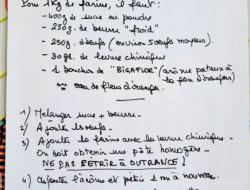 Pour 1Kg de farine, il faut:
- 400g de sucre en poudre
- 250g. de beurre "froid"
- 250g. d'œufs (environ 5 œufs moyens).
- 30gr. de levure chimique
- 1 bouchon de "BIGAFLOR" (arôme patern à la fleur d'oranger)
ou eau de fleurs d'oranger.
1) Mélanger sucre + beurre -
2) Ajouter les œufs -
3) Ajouter la farine avec la levure chimique -
On doit obtenir une pâte homogène -
NE PAS PÉTRIR À OUTRANCE!
4) Ajouter l'arôme et pétrir 1 mn à nouveau.